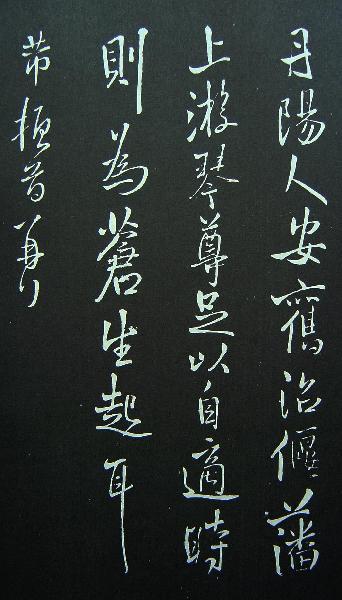 丹陽人安舊治偃藩
上游琴尊足以自適時
則為蒼生起耳
芾頓首再拜